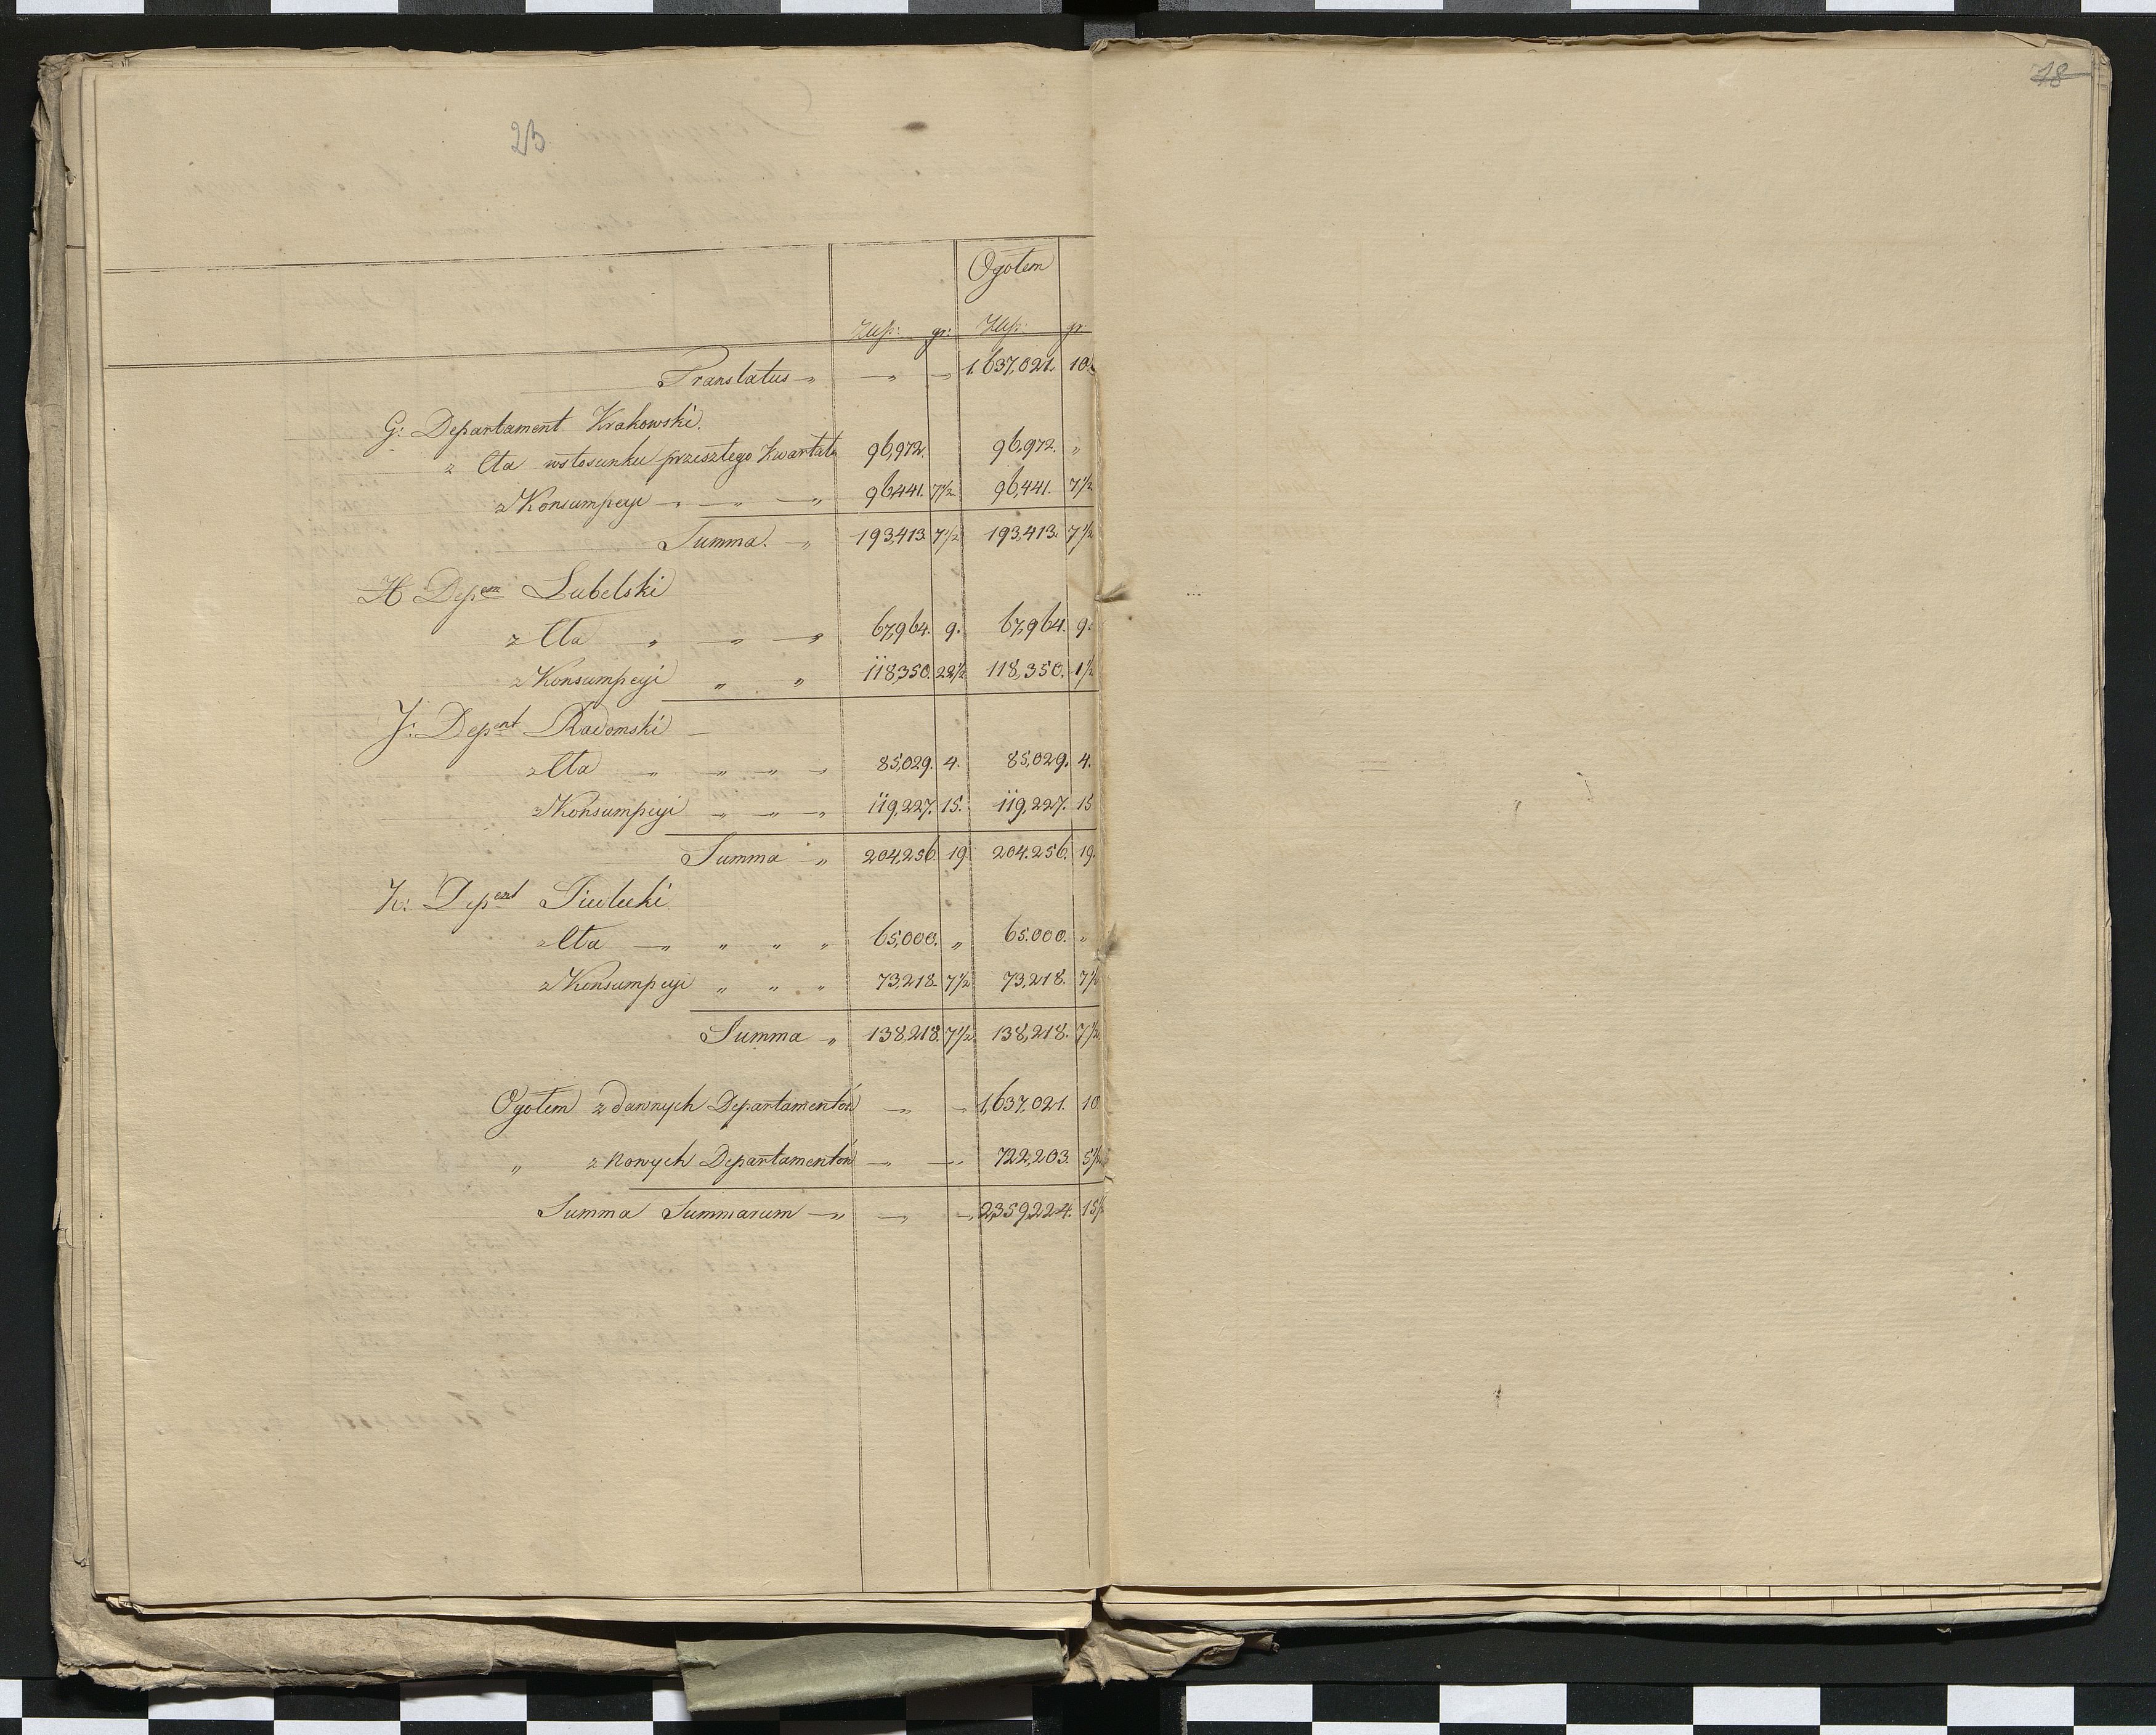 23
18
Ogołem
Złp: gr: Złp: gr:
Translatus „ — „ — „ 1,637,021. 10.
G: Departament Krakowski.
z Cła wstosunku przeszłego Kwartału 96,972. 96,972. „
z Konsumpcyi „ — „ — „ 96441. 7½ 96,441. 7½
Summa. „ 193,413. 7½ 193,413. 7½
H Depent Lubelski
z Cła „ — „ — „ 67,964. 9. 67,964. 9.
z Konsumpcyi „ „ 118,350. 22½ 118,350. 1½
J: Depent Radomski —
z Cła „ — „ — „ — „ 85,029. 4. 85,029. 4.
z Konsumpcyi — „ — „ — „ 119,227. 15. 119,227. 15
Summa „ 204,256. 19. 204.256. 19.
K: Depent Siedlecki
z Cła — „ „ „ „ 65,000. „ 65.000. „
z Konsumpcyi „ „ „ 73,218. 7½ 73,218. 7½
Summa „ 138,218. 7½ 138,218. 7½
Ogołem z dawnych Departamentów — „ — „ 1,637,021. 10
„ z nowych Departamentów — „ — „ 722,203. 5½
Summa Summarum — „ — „ — „ 2,359,224. 15½